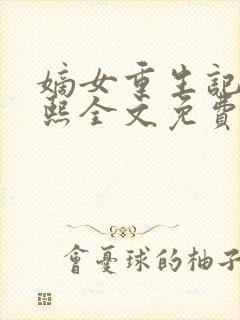 嫡女重生記
熙全文免費
會憂球的柚子